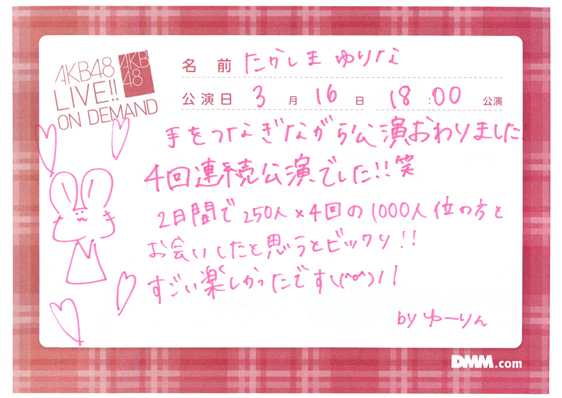 AKB48
LIVE!!
ON DEMAND
AKB
48
名 前 たかしま ゆりな
公演日 3 月 16 日 18:00 公演
手をつなぎながら公演おわりました
4回連続公演でした!!笑
2日間で250人×4回の1000人位の方と
お会いしたと思うとビックリ!!
すごい楽しかったです\(^o^)//
by ゆーりん
DMM.com